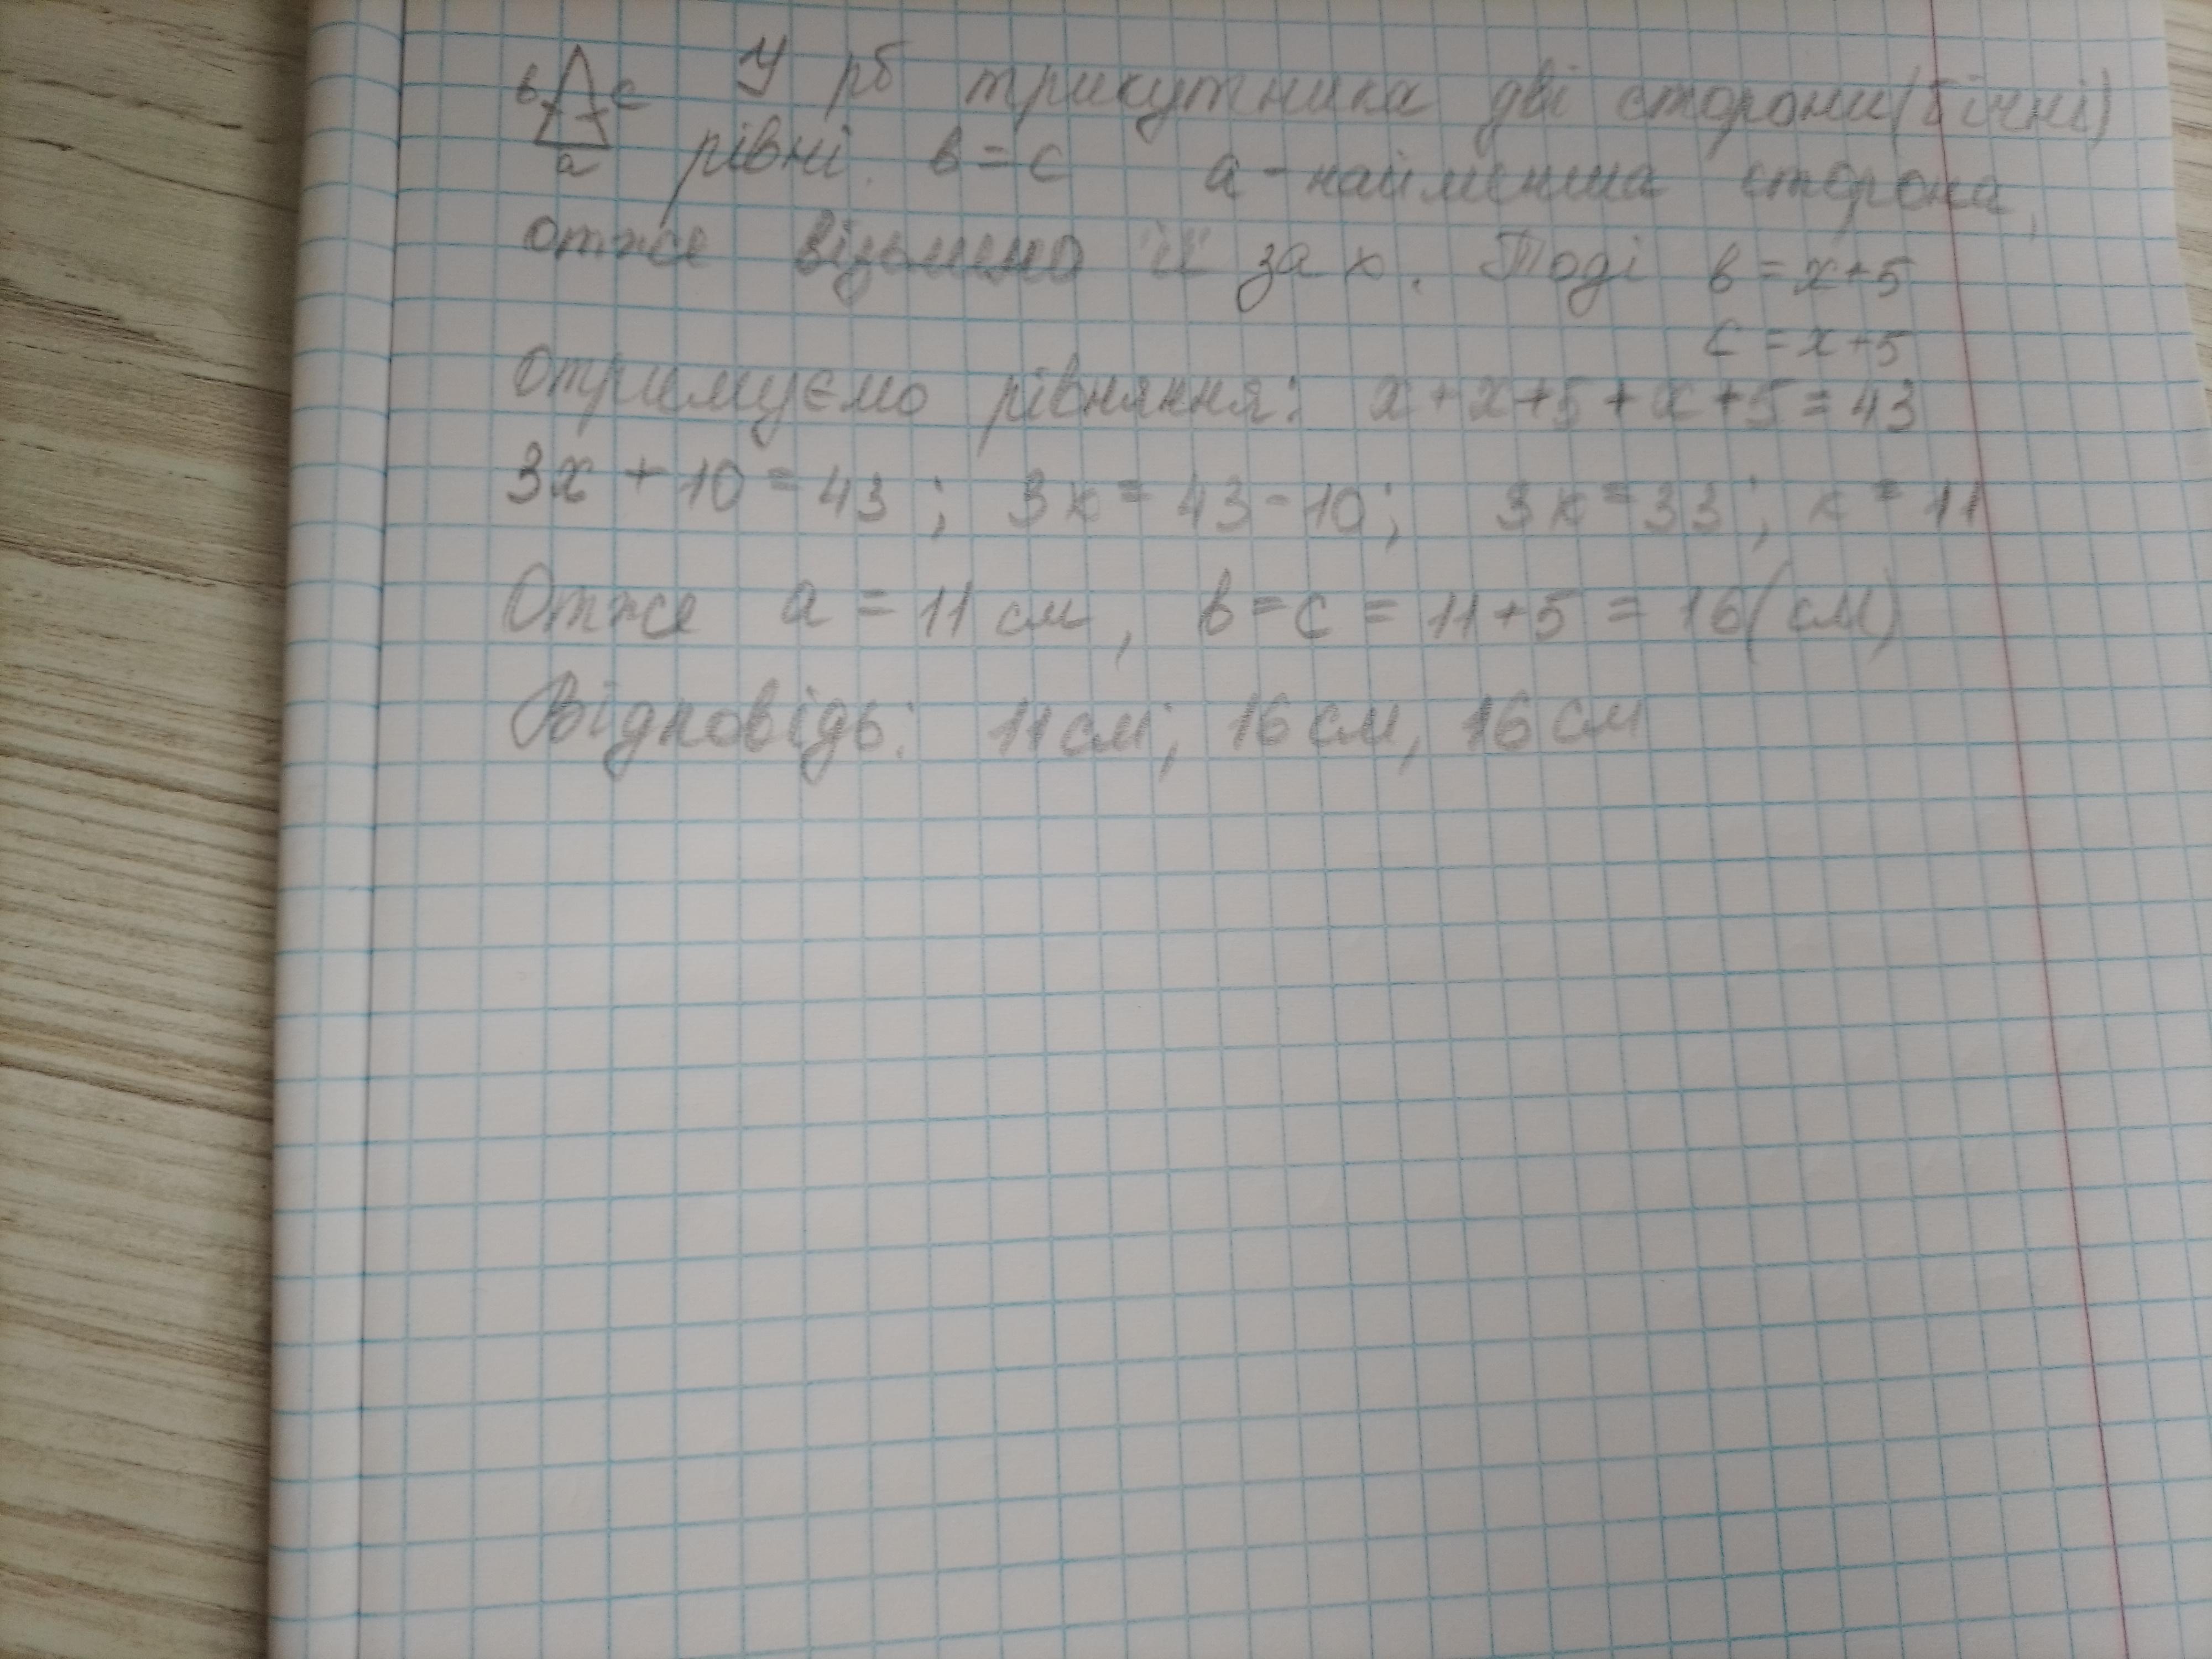 в с У рб трикутника дві сторони (бічні)
а рівні. в = с а - найменша сторона,
отже візьмемо її за х. Тоді в = х + 5
с = х + 5
Отримуємо рівняння: х + х + 5 + х + 5 = 43
3х + 10 = 43; 3х = 43 - 10; 3х = 33; х = 11
Отже а = 11 см, в = с = 11 + 5 = 16 (см)
Відповідь: 11 см; 16 см, 16 см